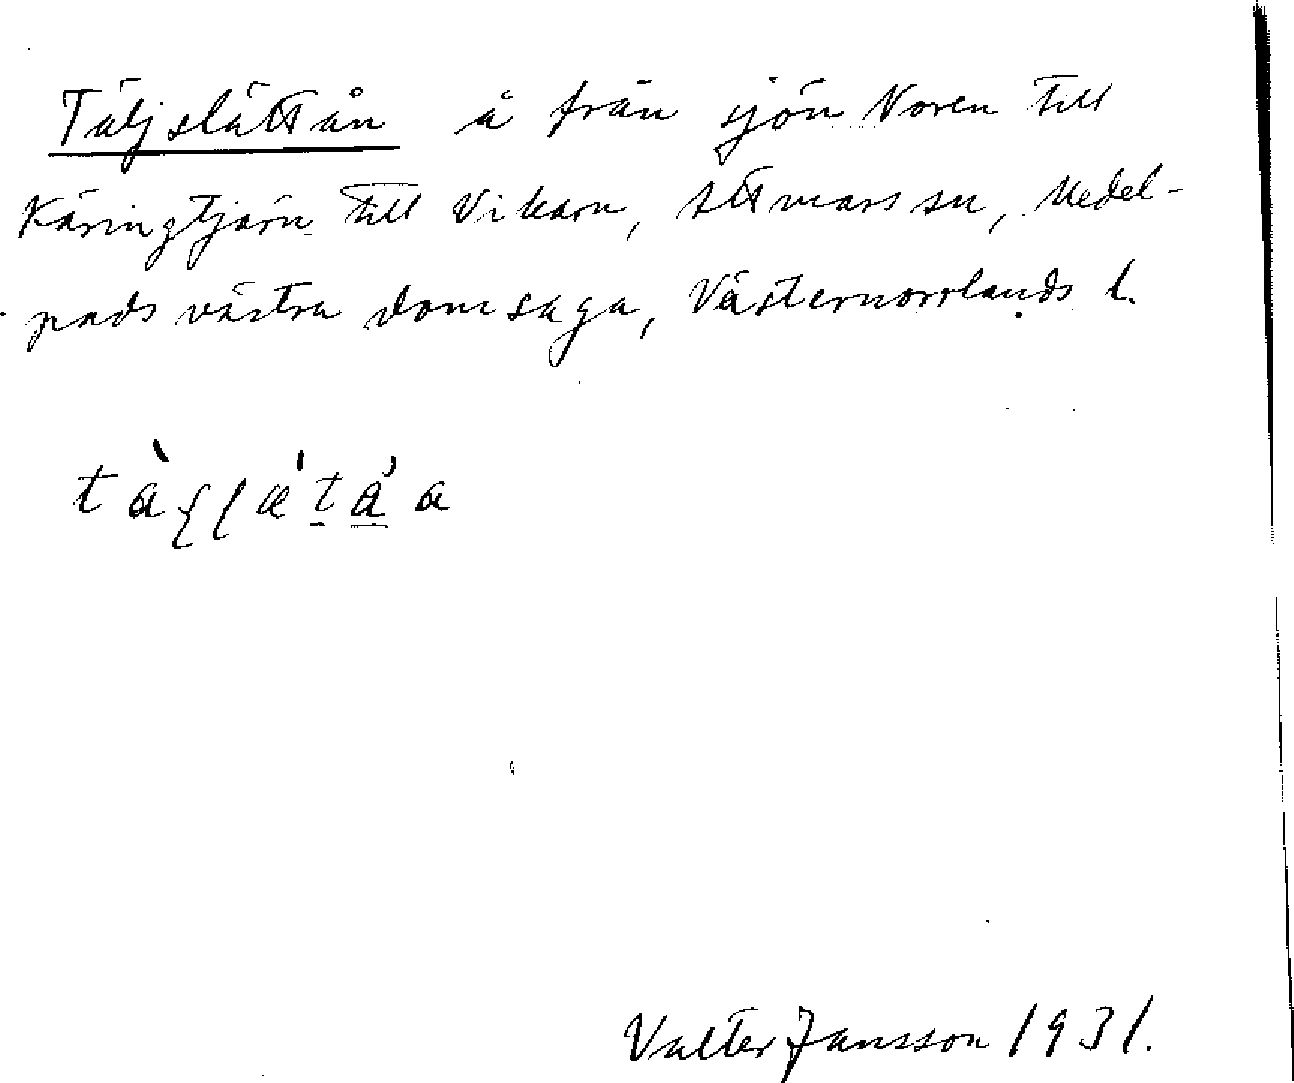 Täljslättån å från sjön Noren till
Käringtjärn till Vikarn, Attmars sn, Medel-
pads västra domsaga, Västernorrlands l.
Valter Jansson 1931.